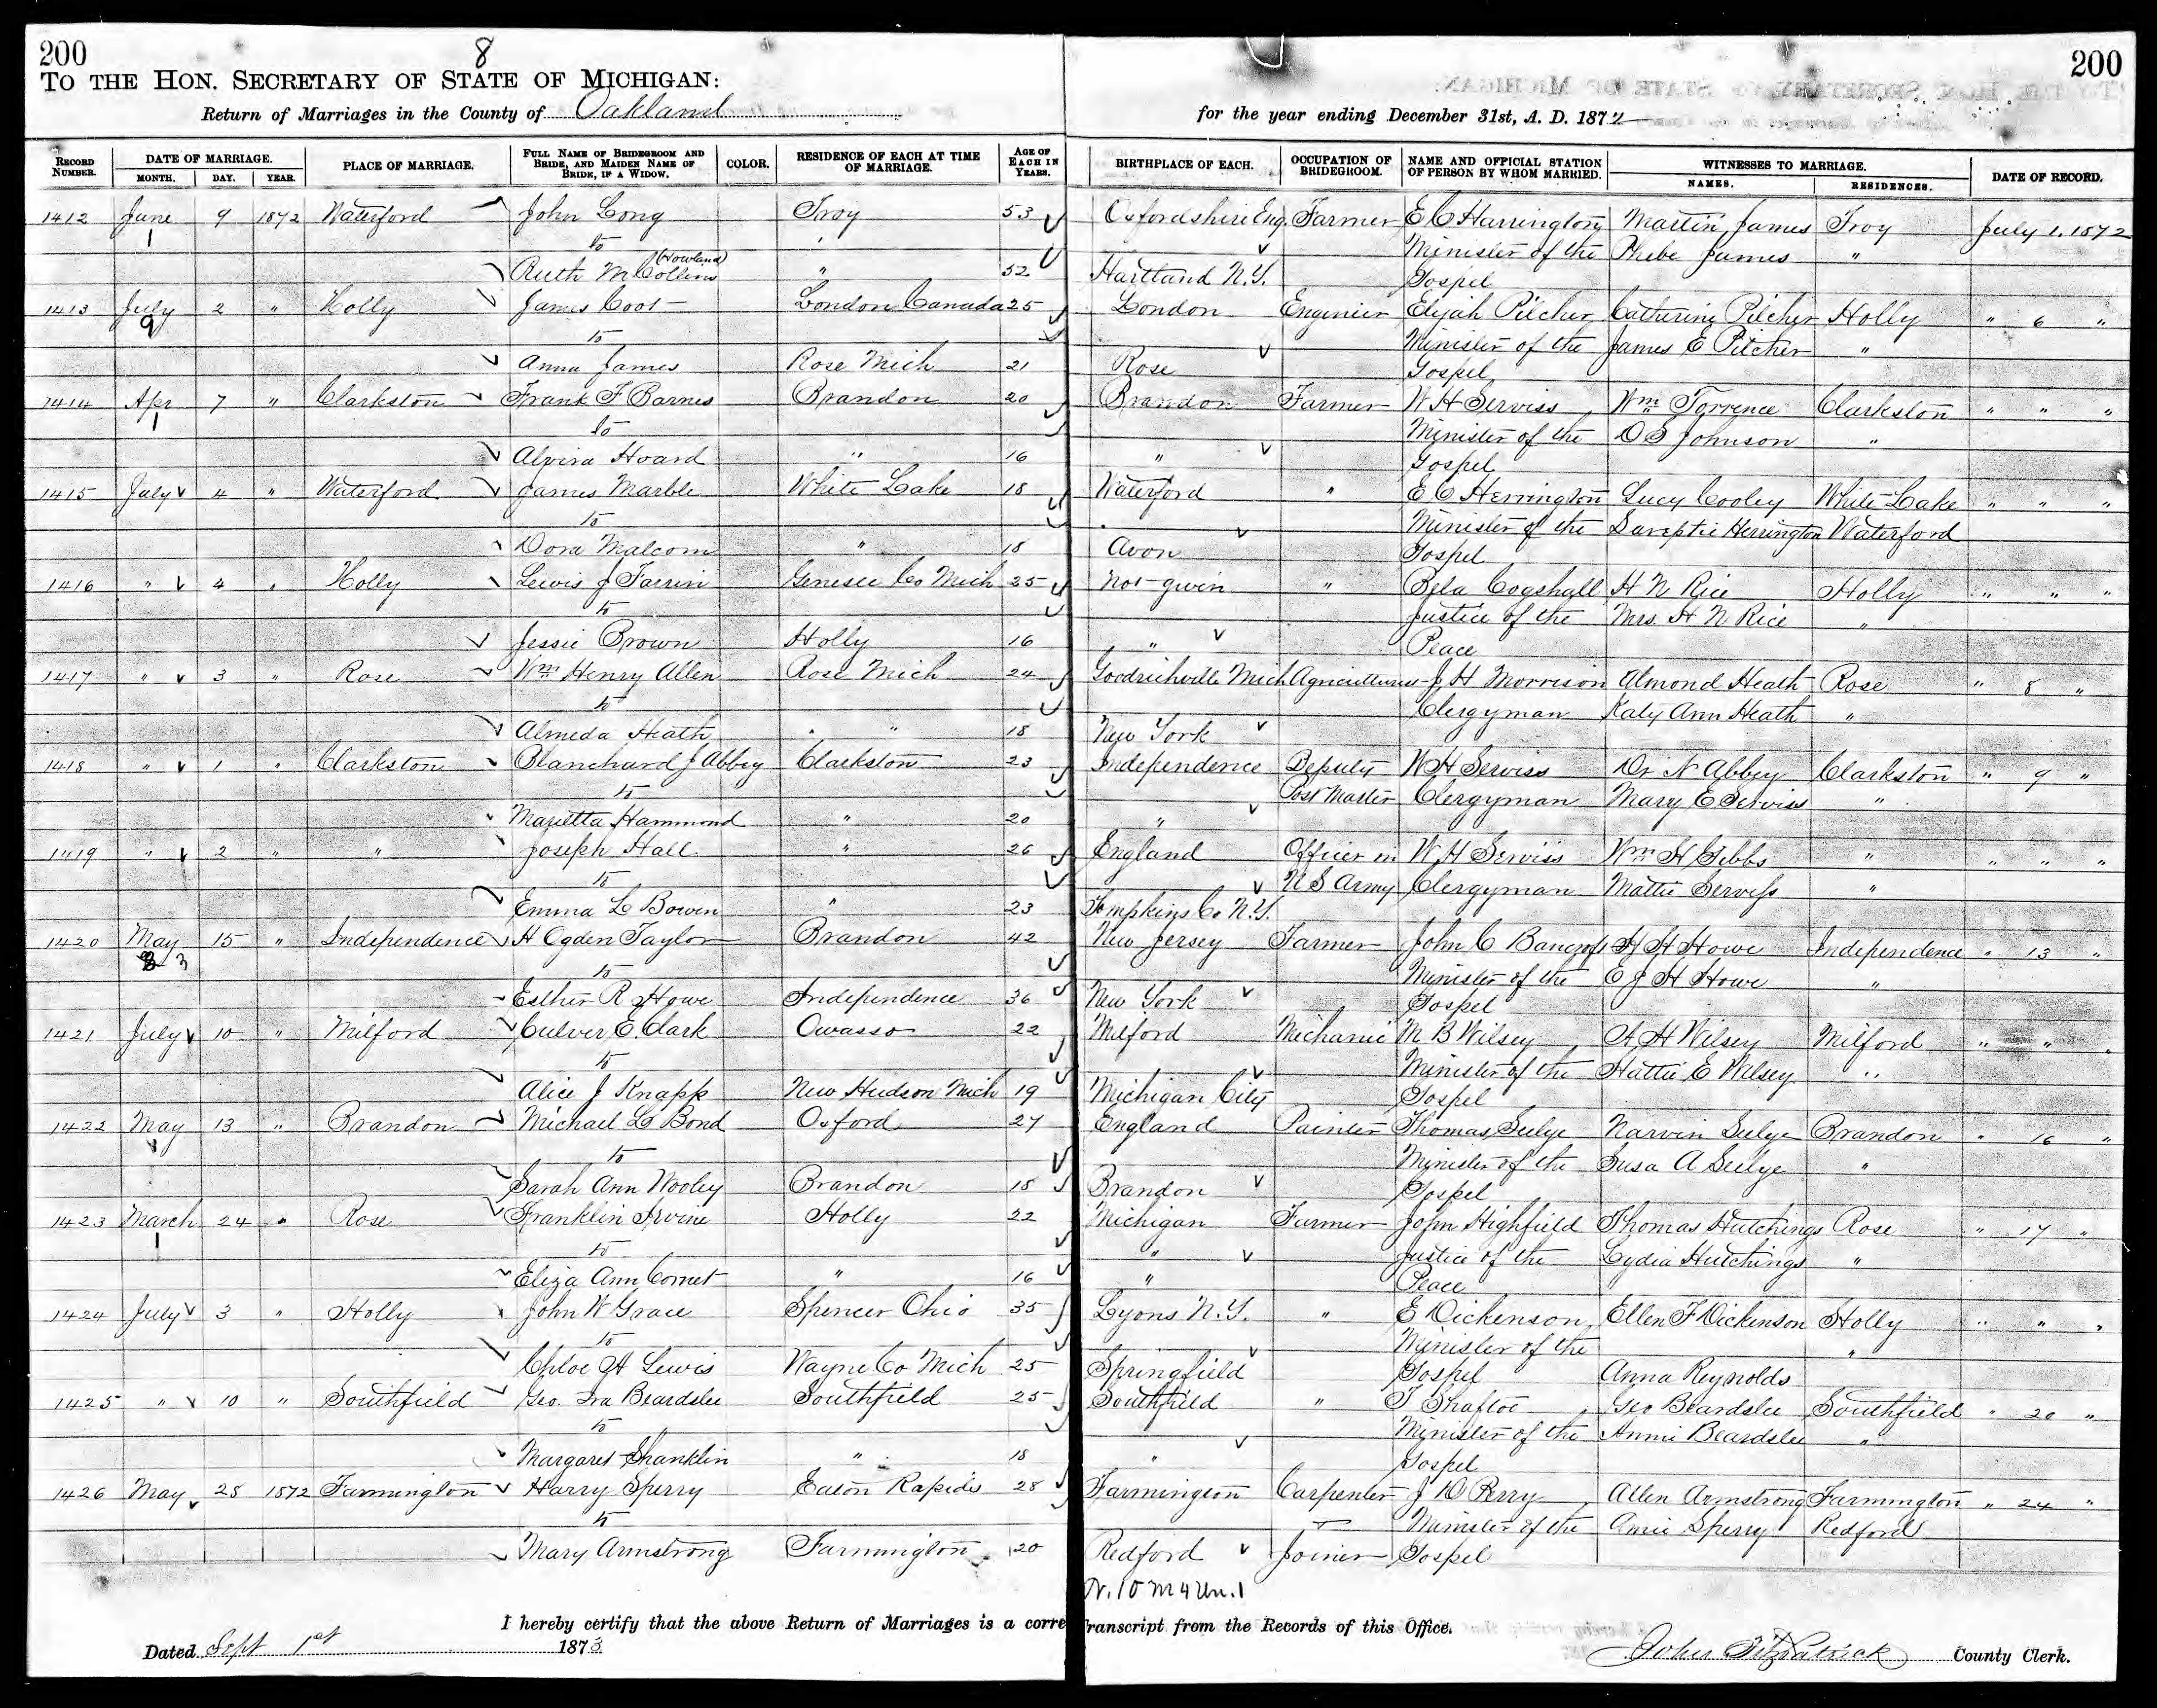 200 8 200
TO THE HON. SECRETARY OF STATE OF MICHIGAN:
Return of Marriages in the County of Oakland for the year ending December 31st, A. D. 1872
RECORD NUMBER. DATE OF MARRIAGE. MONTH. DAY. YEAR. PLACE OF MARRIAGE. FULL NAME OF BRIDEGROOM AND BRIDE, AND MAIDEN NAME OF BRIDE, IF A WIDOW. COLOR. RESIDENCE OF EACH AT TIME OF MARRIAGE. AGE OF EACH IN YEARS. BIRTHPLACE OF EACH. OCCUPATION OF BRIDEGROOM. NAME AND OFFICIAL STATION OF PERSON BY WHOM MARRIED. WITNESSES TO MARRIAGE. NAMES. RESIDENCES. DATE OF RECORD.
1412 June 9 1872 Waterford John Long Troy 53 Oxfordshire Eng. Farmer E C Harrington Martin James Troy July 1. 1872
1 to Minister of the Phebe James "
Ruth M Collins (Howland) " 52 Hartland N.Y. Gospel
1413 July 2 " Holly James Coot London Canada 25 London Enginier Elijah Pilcher Catharine Pilcher Holly " 6 "
9 to Minister of the James E Pitcher "
Anna James Rose Mich 21 Rose Gospel
1414 Apr 7 " Clarkston Frank F Barnes Brandon 20 Brandon Farmer W H Serviss Wm Torrence Clarkston " " "
1 to Minister of the O S Johnson "
Alvira Hoard " 16 " Gospel
1415 July 4 " Waterford James Marble White Lake 18 Waterford " E C Herrington Lucy Cooley White Lake " " "
to Minister of the Sareptie Herrington Waterford
Dora Malcom " 18 Avon Gospel
1416 " 4 " Holly Lewis J Farrin Genesee Co Mich 25 Not given " Bela Cogshall H N Rice Holly " " "
to Justice of the Mrs. H N Rice "
Jessie Brown Holly 16 " Peace
1417 " 3 " Rose Wm Henry Allen Rose Mich 24 Goodrichville Mich Agriculturist J H Morrison Almond Heath Rose " 8 "
to Clergyman Katy Ann Heath "
Almeda Heath " " 18 New York
1418 " 1 " Clarkston Blanchard J Abbey Clarkston 23 Independence Deputy W H Serviss Dr N Abbey Clarkston " 9 "
to Post Master Clergyman Mary E Serviss "
Marietta Hammond " 20 "
1419 " 2 " " Joseph Hall " 26 England Officer in W H Serviss Wm H Gibbs " " " "
to U S Army Clergyman Mattie Serviss "
Emma L Bowen " 23 Tompkins Co N.Y.
1420 May 15 " Independence H Ogden Taylor Brandon 42 New Jersey Farmer John C Bancroft H H Howe Independence " 13 "
3 to Minister of the E J H Howe "
Esther R Howe Independence 36 New York Gospel
1421 July 10 " Milford Culver E. Clark Owasso 22 Milford Michanic M B Wilsey A H Wilsey Milford " " "
to Minister of the Hattie E Wilsey "
Alice J Knapp New Hudson Mich 19 Michigan City Gospel
1422 May 13 " Brandon Michael L Bond Oxford 27 England Painter Thomas Seelye Narvin Seelye Brandon " 16 "
to Minister of the Susa A Seelye "
Sarah Ann Wooley Brandon 18 Brandon Gospel
1423 March 24 " Rose Franklin Irvine Holly 22 Michigan Farmer John Highfield Thomas Hutchings Rose " 17 "
1 to " Justice of the Lydia Hutchings "
Eliza Ann Comet " 16 " Peace
1424 July 3 " Holly John W Grace Spencer Ohio 35 Lyons N.Y. " E Dickenson Ellen F Dickenson Holly " " "
to Minister of the "
Chloe A Lewis Wayne Co Mich 25 Springfield Gospel Anna Reynolds
1425 " 10 " Southfield Geo. Ira Beardslee Southfield 25 Southfield " T Shaftoe Geo Beardslee Southfield " 20 "
to Minister of the Annie Beardslee "
Margaret Shanklin " 18 " Gospel
1426 May 25 1872 Farmington Harry Sperry Eaton Rapids 28 Farmington Carpenter J D Perry Allen Armstrong Farmington " 24 "
to Minister of the Amie Sperry Redford
Mary Armstrong Farmington 20 Redford Joiner Gospel
N. 10 M 4 Un. 1
I hereby certify that the above Return of Marriages is a corre Transcript from the Records of this Office.
Dated Sept 1st 1873 John Fitzpatrick County Clerk.